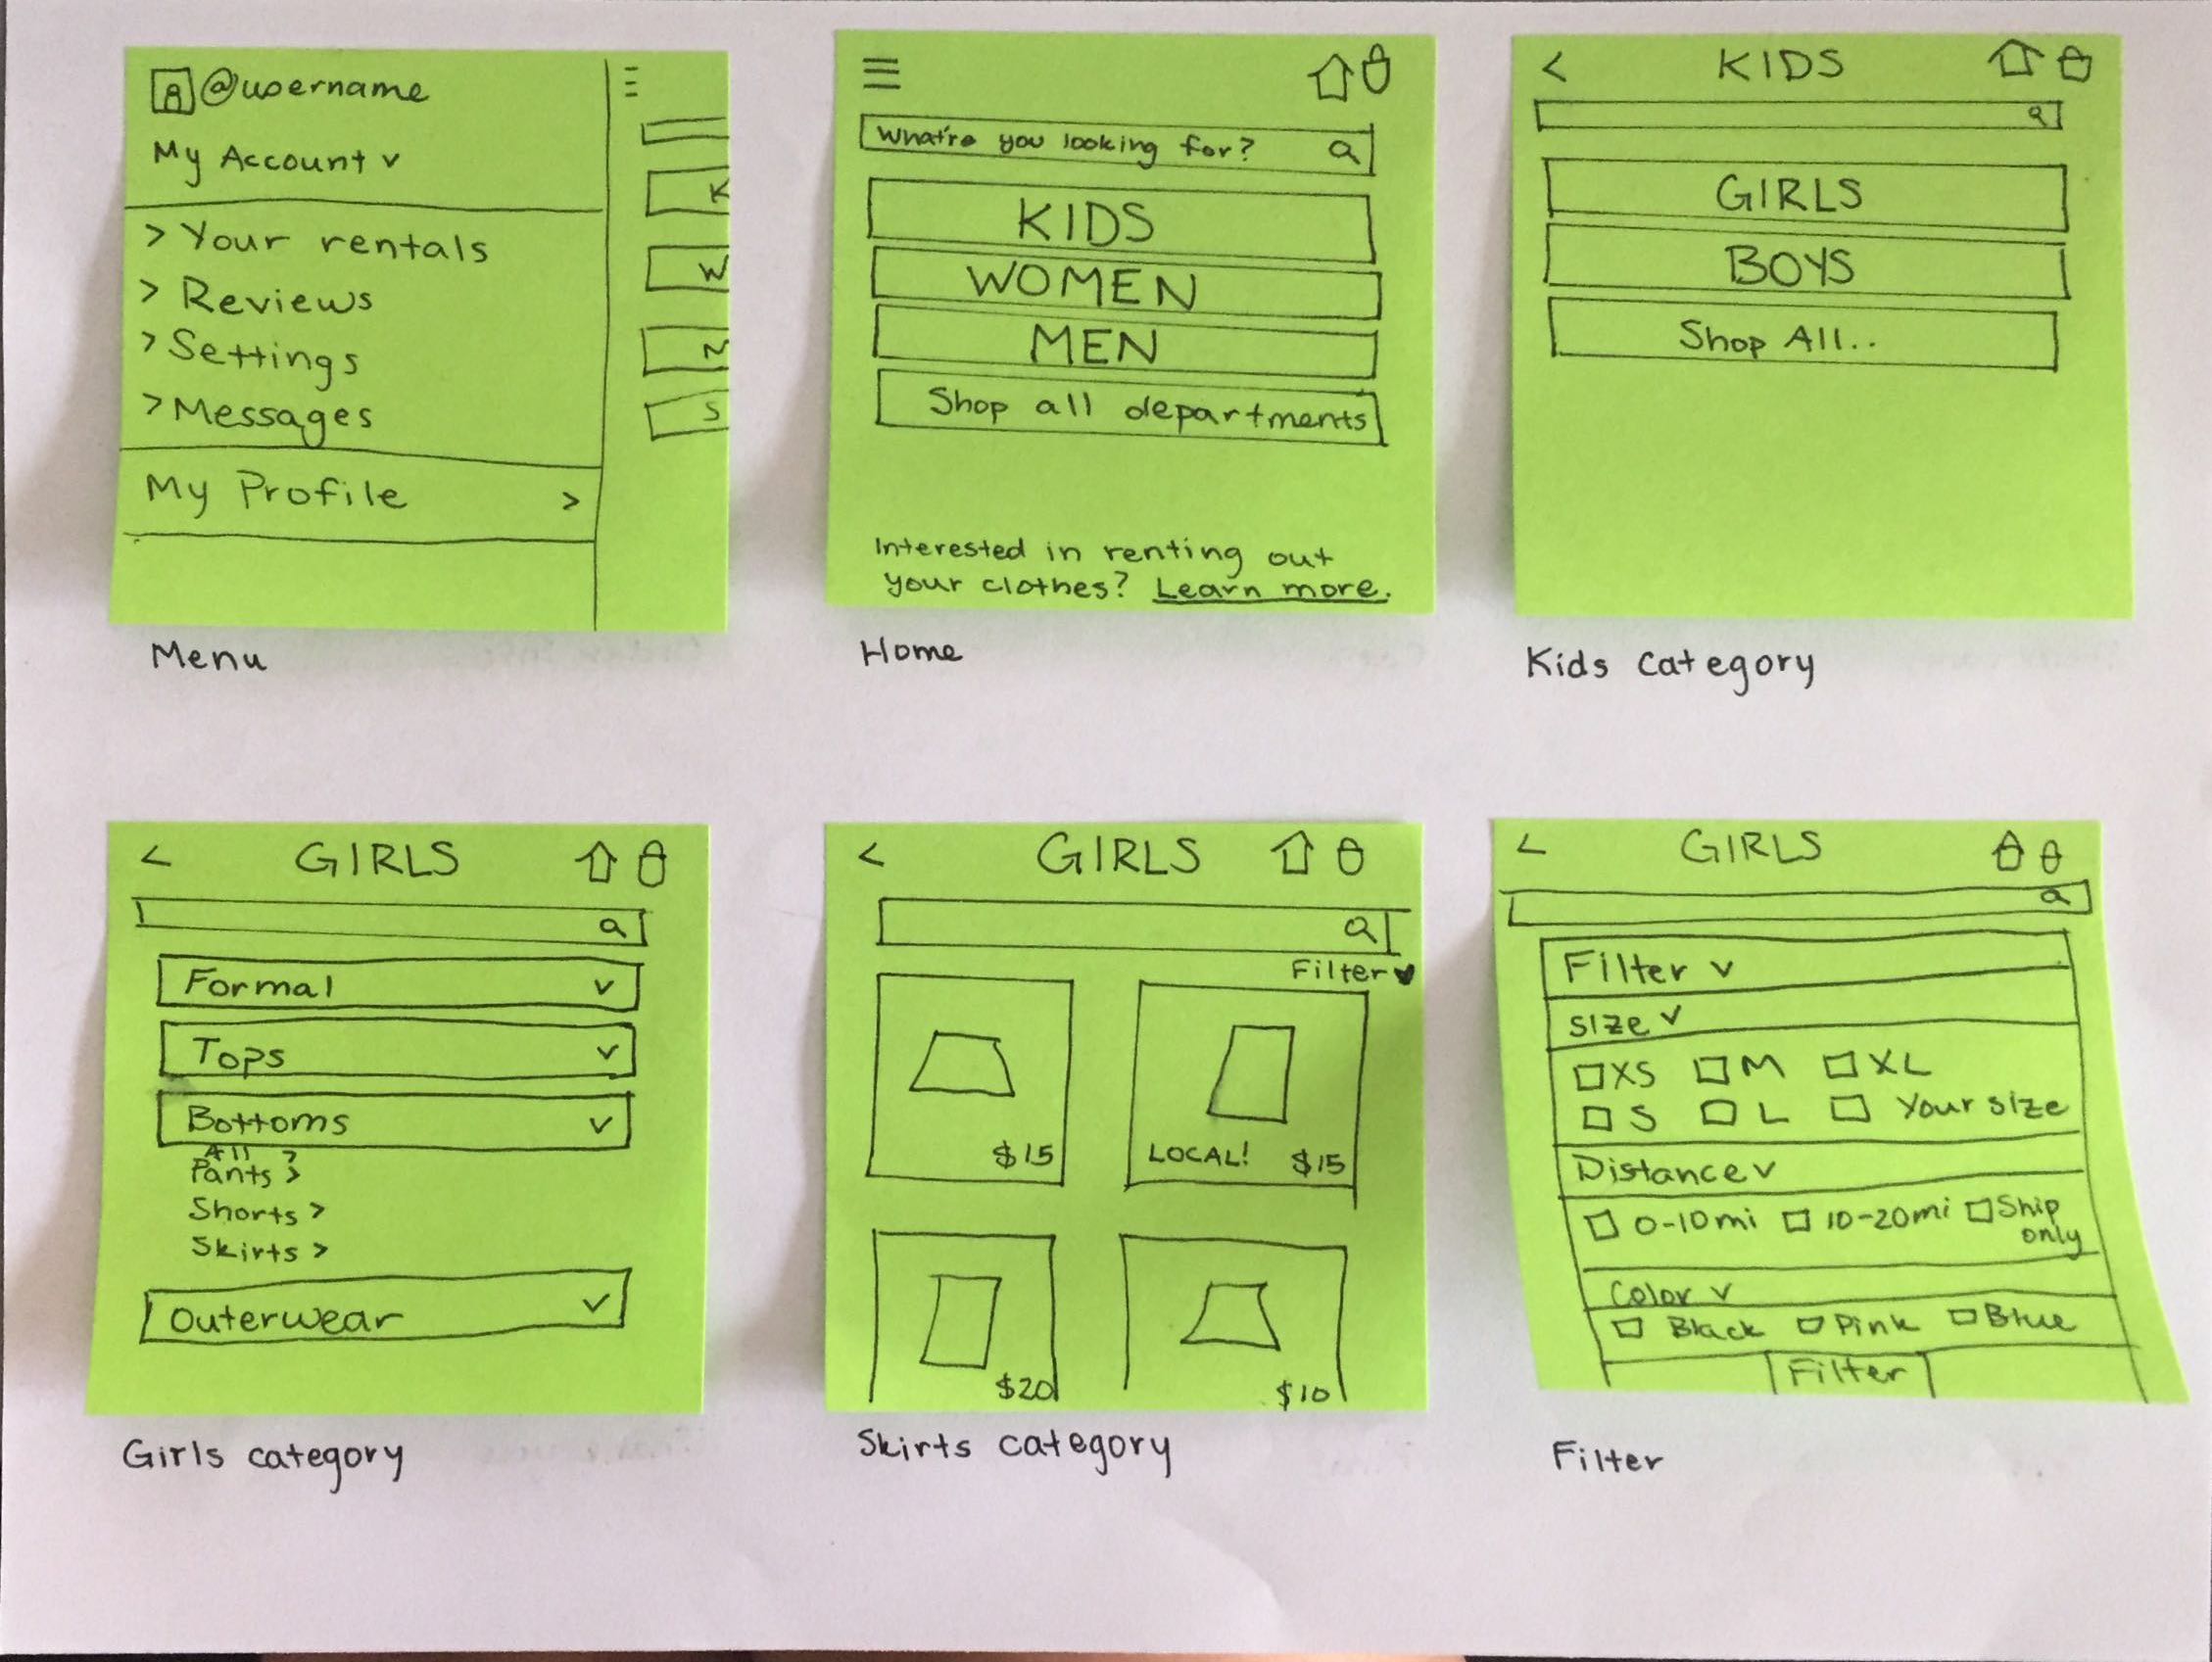 @username
My Account v
> Your rentals
> Reviews
> Settings
> Messages
My Profile >
K
W
S
Menu
What're you looking for?
KIDS
WOMEN
MEN
Shop all departments
Interested in renting out
your clothes? Learn more.
Home
< KIDS
GIRLS
BOYS
Shop All..
Kids category
< GIRLS
Formal v
Tops v
Bottoms v
All >
Pants >
Shorts >
Skirts >
Outerwear v
Girls category
< GIRLS
Filter
$15
LOCAL! $15
$20
$10
Skirts category
< GIRLS
Filter v
Size v
XS M XL
S L Your size
Distance v
0-10mi 10-20mi Ship
only
Color v
Black Pink Blue
Filter
Filter